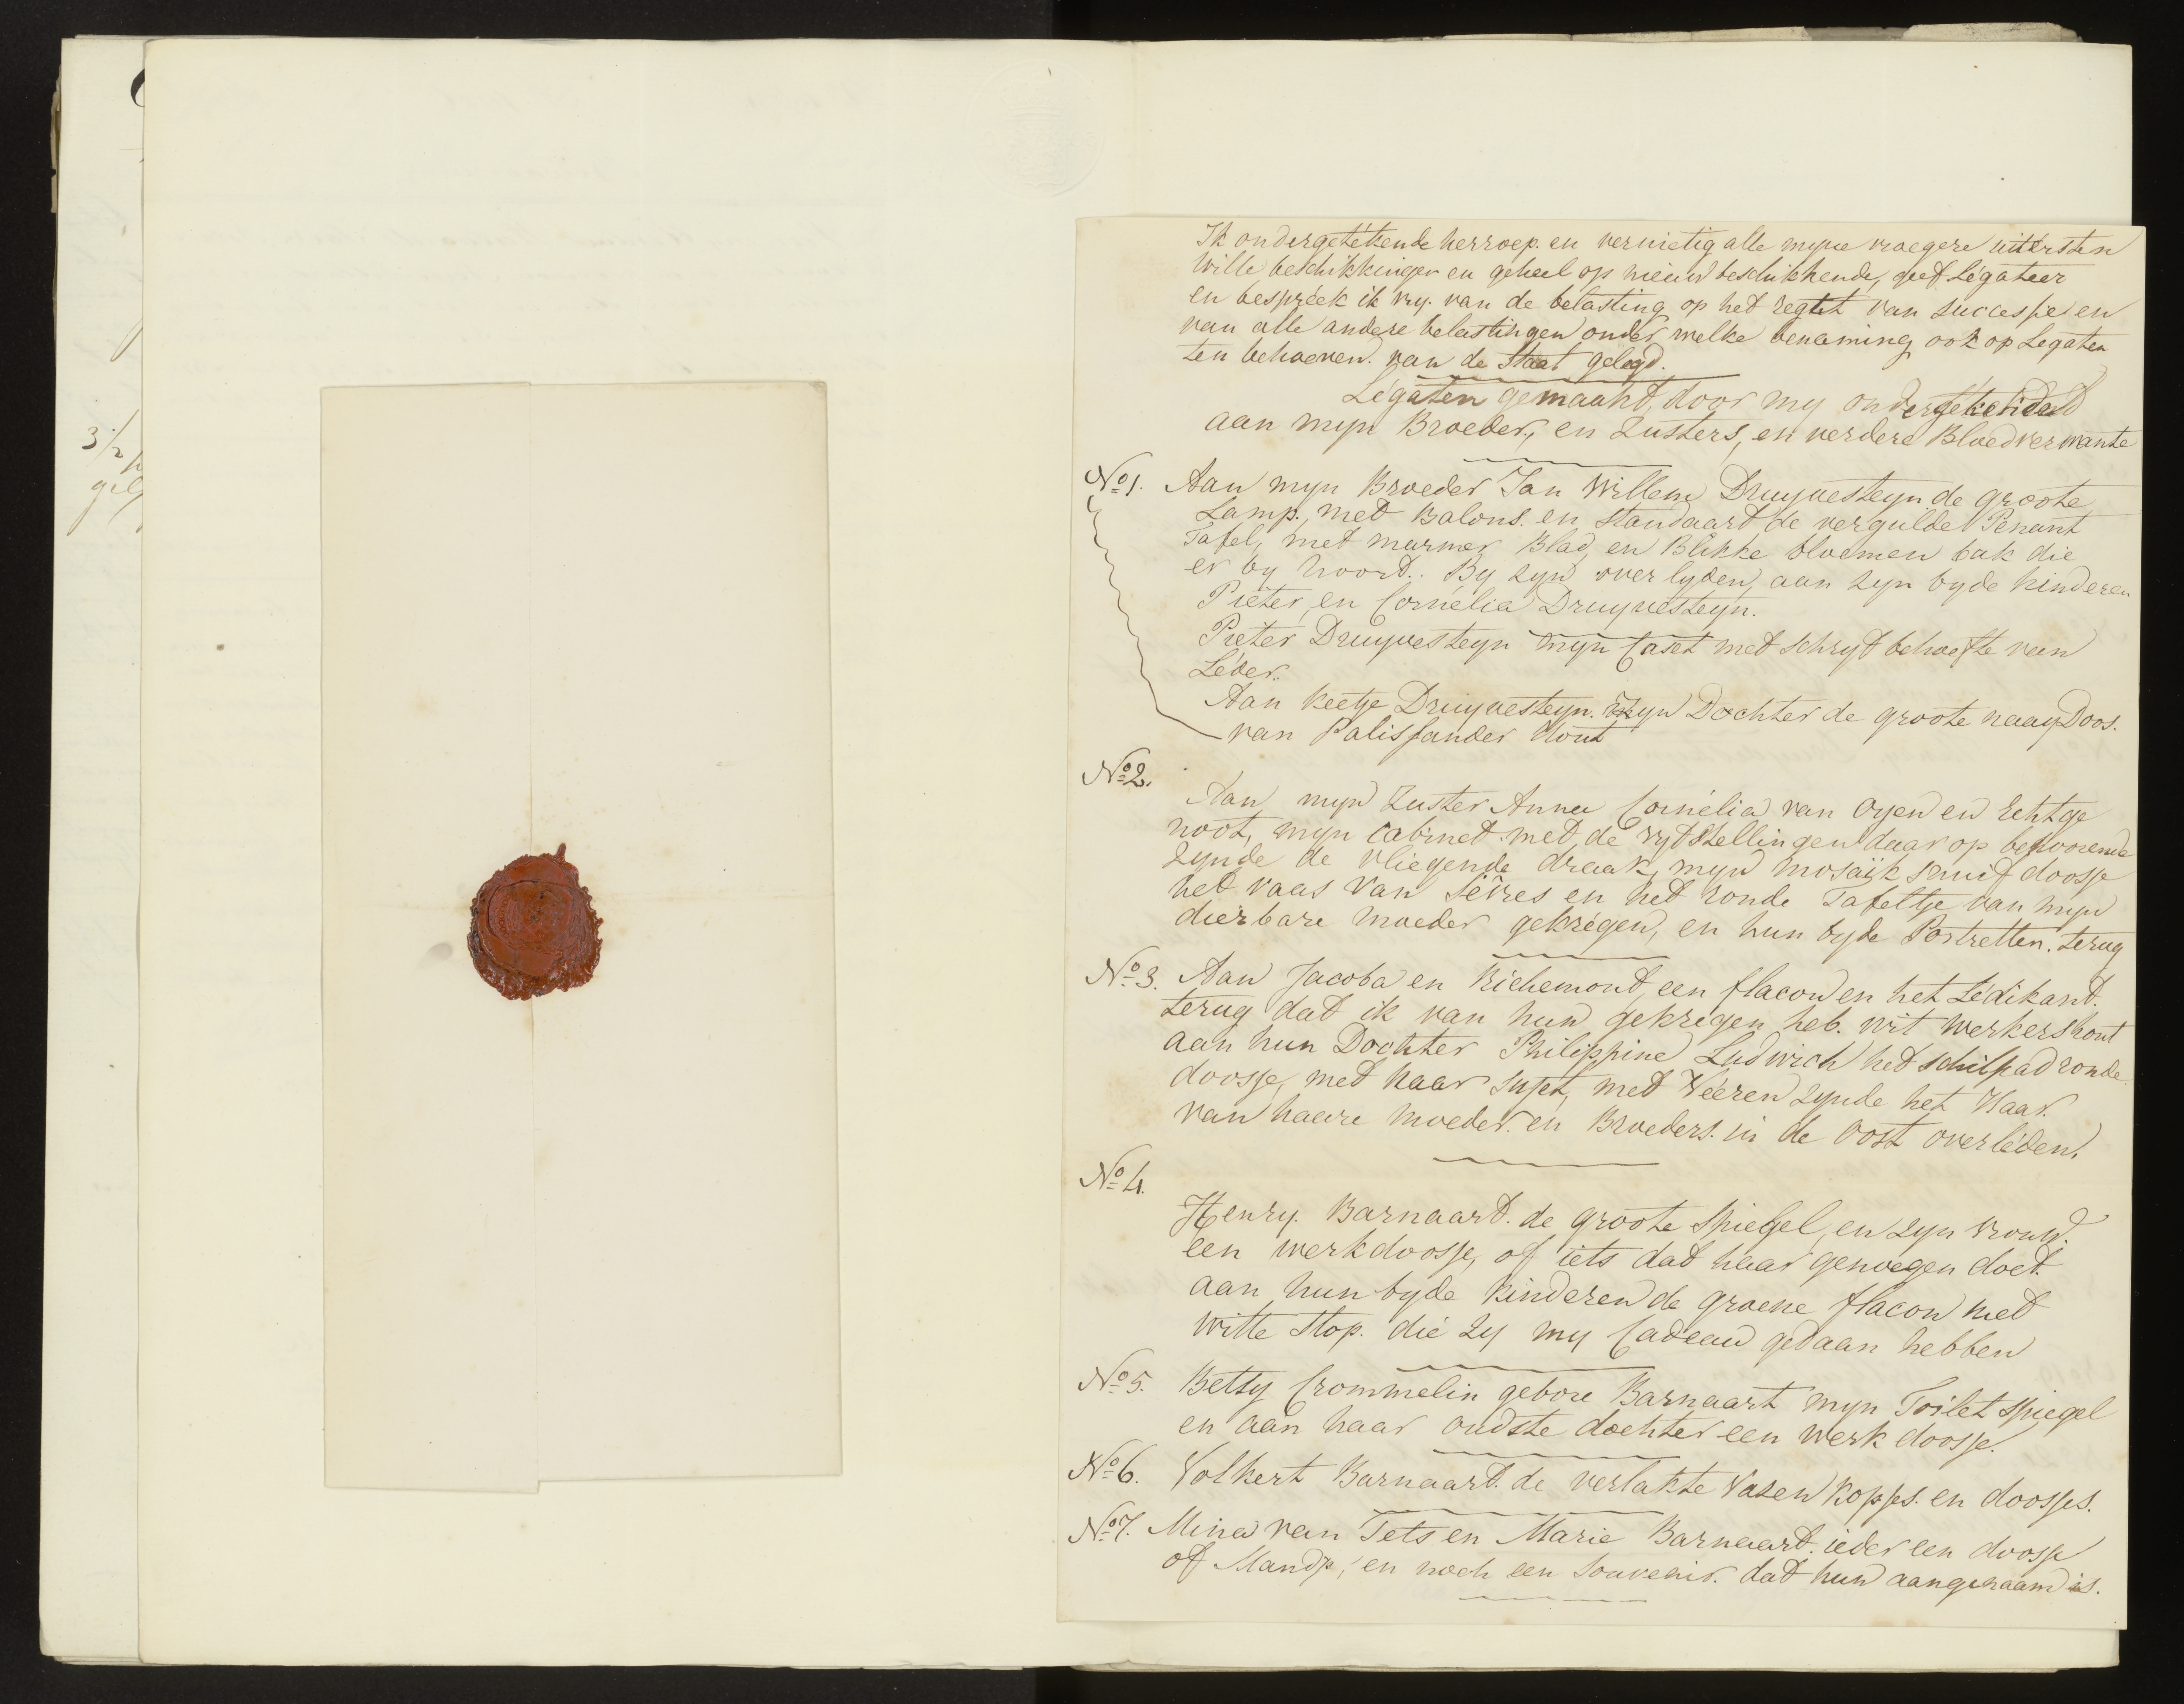 3 1/2
Ik ondergetékende herroep. en vernietig alle myne vroegere uitersten
Wille beschikkingen en geheel op nieuw beschikkende, geef Légateer
en bespréek ik vry. van de belasting op het regt van successie en
van alle andere belastingen onder welke benaming ook op Legaten
ten behoeven. van de Staat gelegd.
Légaten gemaakt, door my ondergeteekend
aan myn Broeder, en Zusters, en verdere Bloedverwante
No 1. Aan myn Broeder Jan Willem Druyvesteyn de groote
Lamp, met Balons. en standaard de vergulde Penant
Tafel, met marmer Blad, en Blikke bloemen bak die
er by hoord. By zyn overlyden, aan zyn byde kinderen
Piéter, en Cornélia Druyvesteyn.
Piéter Druyvesteyn myn Caset met schryf behoefte van
Léder.
Aan Keetje Druyvesteyn. zyn Dochter de groote naay Doos.
van Palissander Hout
No 2.
Aan myn Zuster Anna Cornélia van Oyen en Echtge
noot, myn Cabinet met de vyf Stellingen daar op behoorende
zynde de vliegende draak, myn mosaïk snuif doosje
het vaas van Sêvres en het ronde Tafeltje van myn
dierbare Moeder gekrégen, en hun byde Portretten. terug
No 3. Aan Jacoba en Richemont, een flacon en het Lédikant.
terug dat ik van hun gekregen heb. wit werkershout
aan hun Dochter Philippine Ludwich het schilpad ronde
doosje, met haar sujet, met Véeren zynde het Haar.
van haare moeder. en Broeders. in de Oost overléden.
No 4.
Henry. Barnaart. de groote Spiegel, en zyn vrouw.
een werkdoosje, of iets dat haar genoegen doet.
aan hun byde kinderen de groene flacon met
witte Stop. die zy my Cadeau gedaan hebben
No 5. Betsy Crommelin gebore Barnaart myn Toilet spiegel
en aan haar oudste dochter een werk doosje.
No 6. Volkert Barnaart. de verlakte Vasen kopjes. en doosjes.
No 7. Mina van Tets en Marie Barnaart. ieder een doosje
of Mandje, en noch een Souvenir. dat hun aangenaam is.